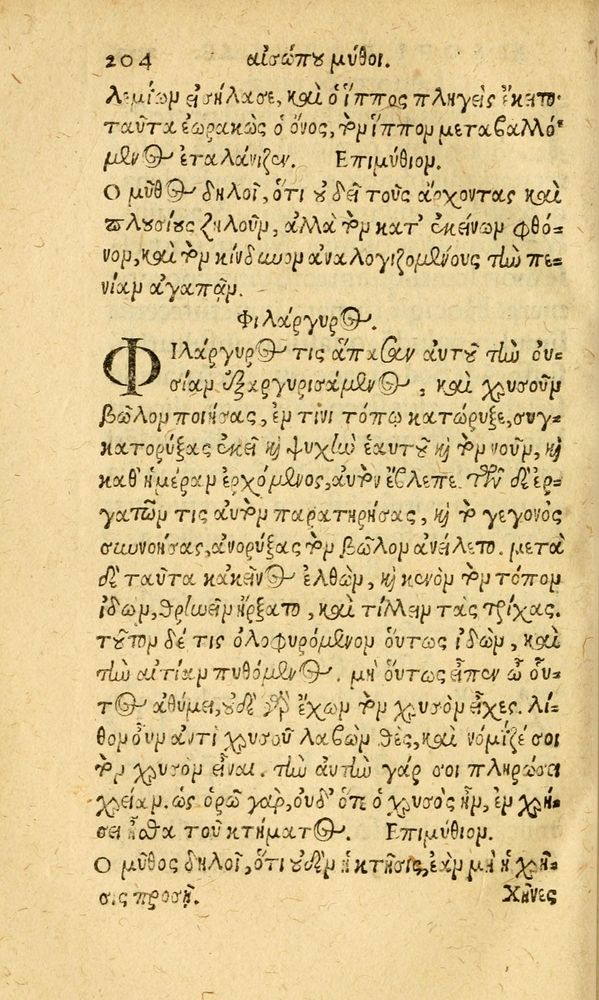 204 αἰσώπου μῦθοι.
λεμίων εἰσήλασε, καὶ ὁ ἵππος πληγεὶς ἔκειτο·
ταῦτα ἑωρακὼς ὁ ὄνος, τὸν ἵππον μεταβαλλό-
μενος ἐταλάνιζεν. Επιμύθιον.
Ο μῦθος δηλοῖ, ὅτι οὐ δεῖ τοὺς ἄρχοντας καὶ
πλουσίους ζηλοῦν, ἀλλὰ τὸν κατ' ἐκείνων φθό-
νον, καὶ τὸν κίνδυνον ἀναλογιζομένους τὴν πε-
νίαν ἀγαπᾶν.
Φιλάργυρος.
ΦΙλάργυρός τις ἅπασαν αὐτοῦ τὴν οὐ-
σίαν ἐξαργυρισάμενος, καὶ χρυσοῦν
βῶλον ποιήσας, ἔν τινι τόπῳ κατώρυξε, συγ-
κατορύξας ἐκεῖ καὶ ψυχὴν ἑαυτοῦ καὶ τὸν νοῦν, καὶ
καθ' ἡμέραν ἐρχόμενος, αὐτὸν ἔβλεπε. τῶν δὲ ἐρ-
γατῶν τις αὐτὸν παρατηρήσας, καὶ τὸ γεγονὸς
συννοήσας, ἀνορύξας τὸν βῶλον ἀνείλετο. μετὰ
δὲ ταῦτα κἀκεῖνος ἐλθὼν, καὶ κενὸν τὸν τόπον
ἰδὼν, θρηνεῖν ἤρξατο, καὶ τίλλειν τὰς τρίχας.
τοῦτον δέ τις ὀλοφυρόμενον οὕτως ἰδὼν, καὶ
τὴν αἰτίαν πυθόμενος. μὴ οὕτως εἶπεν ὦ οὗ-
τος ἀθύμει, οὐδὲ γὰρ ἔχων τὸν χρυσὸν εἶχες. λί-
θον οὖν ἀντὶ χρυσοῦ λαβὼν θὲς, καὶ νόμιζέ σοι
τὸν χρυσὸν εἶναι. τὴν αὐτὴν γάρ σοι πληρώσει
χρείαν. ὡς ὁρῶ γὰρ, οὐδ' ὅτε ὁ χρυσὸς ἦν, ἐν χρή-
σει ἦσθα τοῦ κτήματος. Επιμύθιον.
Ο μῦθος δηλοῖ, ὅτι οὐδὲν ἡ κτῆσις, ἐὰν μὴ ἡ χρῆ-
σις προσῇ. Χῆνες